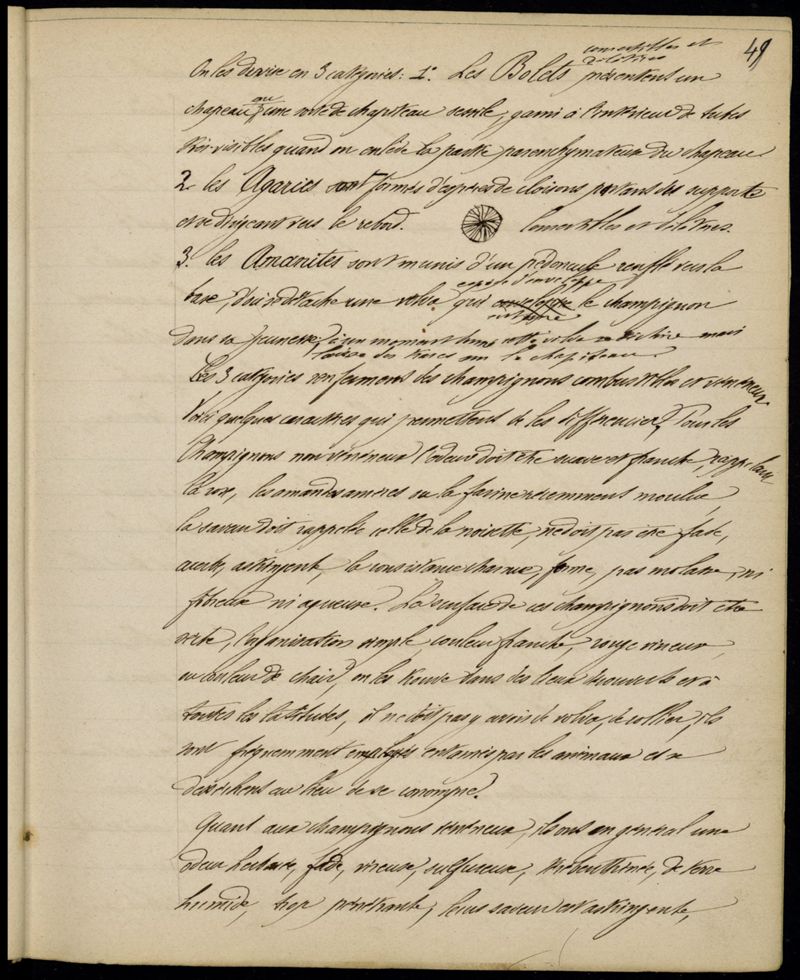 49
comestibles et
délétères
On les divise en 3 catégories: 1°. Les Bolets présentent un
ou
chapeau, une sorte de chapiteau sessile, garni à l'intérieur de tubes
très visibles quand on enlève la partie parenchymateuse du chapeau.
2. les Agarics sont formés d'espèces de cloisons partant des supports
et se dirigeant vers le rebord. Comestibles et délétères.
3. les Amanites sont munis d'un pédoncule renflé vers la
espèce d'enveloppe
base, d'où se détache une volva, qui enveloppe le champignon
entoure
dans sa jeunesse, à un moment donné cette volva se déchire mais
laisse des traces sur le chapiteau.
Les 3 catégories renferment des champignons comestibles et vénéneux
Voici quelques caractères qui permettent de les différencier. Pour les
Champignons non vénéneux l'odeur doit être suave et franche, rappelant
la rose, les amandes amères ou la farine récemment moulue,
la saveur doit rappeler celle de la noisette, ne doit pas être fade,
acerbe, astringente, la consistance charnue, ferme, pas molasse, ni
fibreuse ni aqueuse. La surface de ces champignons doit être
sèche, l'organisation simple couleur franche, rouge vineux,
ou couleur de chair, on les trouve dans des lieux découverts et à
toutes les latitudes, il ne doit pas y avoir de volva, de collier, ils
sont fréquemment entamés par les animaux et se
dessèchent au lieu de se corrompre.
Quant aux champignons vénéneux, ils ont en général une
odeur herbacée, fade, vireuse, sulfureuse, térébenthinée, de terre
humide, trop pénétrante, leur saveur est astringente,